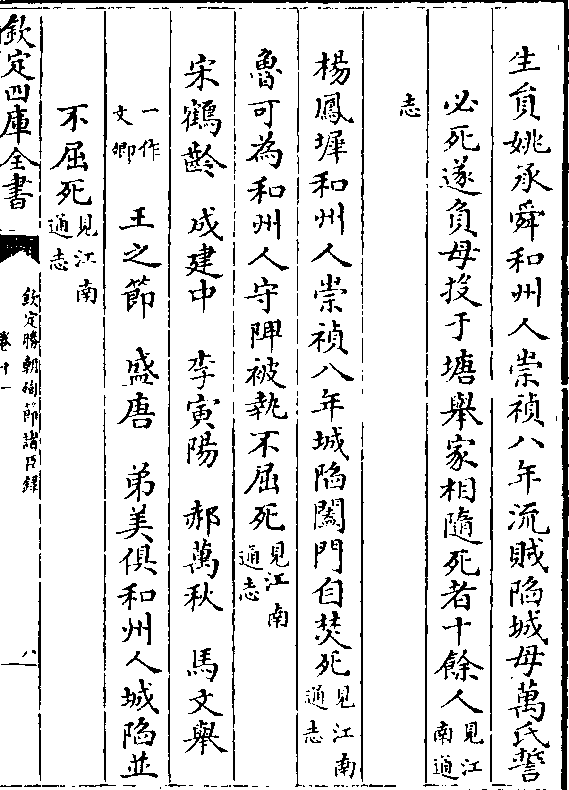 生員姚承舜和州人崇禎八年流賊陷城母萬氏誓
必死遂負母投于塘舉家相隨死者十餘人見江南通
志
楊鳳墀和州人崇禎八年城陷闔門自焚死見江南通志
魯可為和州人守陴被執不屈死見江南通志
宋鶴齡　成建中　李寅陽　郝萬秋　馬文舉
一作文卿　王之節　盛唐　弟美俱和州人城陷並
不屈死見江南通志
欽定四庫全書
欽定勝朝殉節諸臣錄
卷十一
八